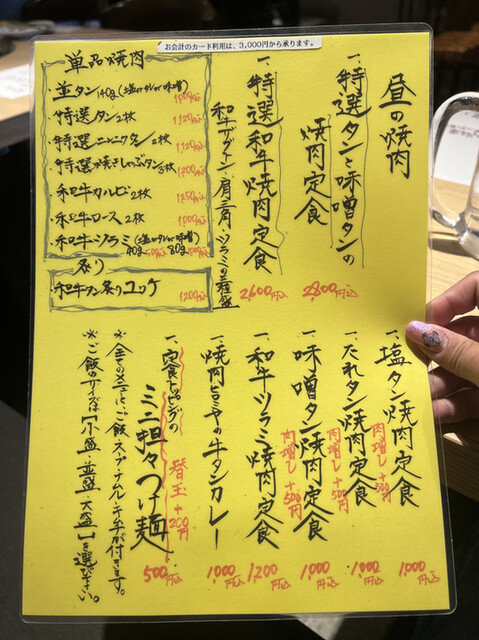 お会計のカード利用は、3,000円から承ります。
昼の焼肉
一、特選タンと味噌タンの
焼肉定食
2,800円込
一、特選和牛焼肉定食
和牛ザブトン・肩三角・ツラミの三種盛
2,600円込
単品焼肉
・並タン40g(塩orタレor味噌)
1000円込
・特選タン2枚
1,120円込
・特選ニンニクタン2枚
1,120円込
・特選焼きしゃぶタン3枚
1,200円込
・和牛カルビ2枚
1,250円込
・和牛ロース2枚
1,000円込
・和牛ツラミ(塩orタレor味噌)
40g 500円込 80g 1000円込
炙り
・和牛タン炙りユッケ
1200円込
一、塩タン焼肉定食
肉増し+500円
1,000円込
一、たれタン焼肉定食
肉増し+500円
1,000円込
一、味噌タン焼肉定食
肉増し+500円
1,000円込
一、和牛ツラミ焼肉定食
1,200円込
一、焼肉ヒミヤの牛タンカレー
1,000円込
一、定食トッピングの
ミニ担々つけ麺
替玉+200円
500円込
※全てのメニューにご飯・スープ・ナムル・キムチが付きます。
※ご飯のサイズは【小盛・並盛・大盛】お選び下さい。